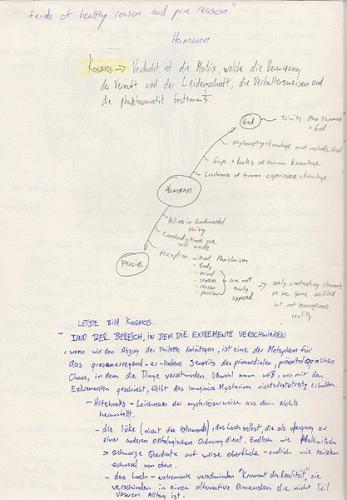 feuds of healthy reason and pure reason"
Hamann
Kosmos → Verdacht ist die Matrix, welche die Verwirrung
der Vernunft und der Leidenschaft, die Verhaltensweisen und
die phantasmatik bestimmt.
God
Trinity
God
Gaps + lacks of human knowledge
human experience + knowledge
Hamann
Believes in fundamental
Unity
perception without Manichaeism
- body
- mind
- senses
- reason
- passion
are not
really
opposed.
only contrasting elements
of the same unified
but not homogeneous
reality
LETZTE Bild KOSMOS.
UND DER BEREICH, IN DEM DIE EXTREMENTE VERSCHWINDEN
wenn wir den Abzug der Toilette betätigen, ist eine der Metaphern für
das grauenerregend-er-habene Jenseits des primordialen, präontologischen
Chaos, in dem die Dinge verschwinden. Obwohl man weiß, was mit den
Exkrementen geschieht, bleibt das imaginäre Mysterium nichtsdestotrotz erhalten.
- Hitchcocks - Leichnam der mysteriöserweise aus dem Nichts
herausfällt.
- die lüke (nicht die Extremente), das Loch selbst, die als übergang zu
einer anderen ontologischen Ordnung dient. Endlich wie
> schwarze Quadrate auf weise oberfläche - endlich wie toiletten
schüssel von oben.
- das Loch - extremente verschwinden "Krümmt die Realität", sie
verschwinden in einen alternativen Dimension die nicht teil
unseren Alltag ist.